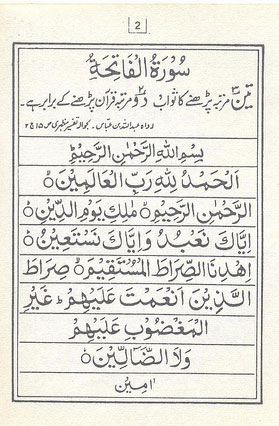 2
سُوْرَةُ الْفَاتِحَةِ
تین مرتبہ پڑھنے کا ثواب دو مرتبہ قرآن پڑھنے کے برابر ہے۔
رواہ عبداللہ بن عباس۔ بحوالہ تفسیر مظہری ص ۱۵ ج ۲
بِسْمِ اللهِ الرَّحْمٰنِ الرَّحِيْمِ
اَلْحَمْدُ لِلّٰهِ رَبِّ الْعَالَمِيْنَ ۝
الرَّحْمٰنِ الرَّحِيْمِ ۝ مٰلِكِ يَوْمِ الدِّيْنِ ۝
اِيَّاكَ نَعْبُدُ وَاِيَّاكَ نَسْتَعِيْنُ ۝
اِهْدِنَا الصِّرَاطَ الْمُسْتَقِيْمَ ۝ صِرَاطَ
الَّذِيْنَ اَنْعَمْتَ عَلَيْهِمْ ۝ غَيْرِ
الْمَغْضُوْبِ عَلَيْهِمْ
وَلَا الضَّآلِّيْنَ ۝
اٰمِيْن